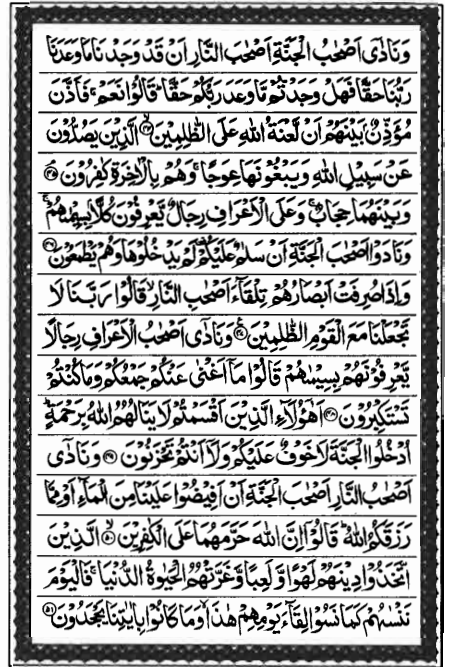 وَنَادٰۤى اَصْحٰبُ الْجَنَّةِ اَصْحٰبَ النَّارِ اَنْ قَدْ وَجَدْنَا مَا وَعَدَنَا
رَبُّنَا حَقًّا فَهَلْ وَجَدْتُّمْ مَّا وَعَدَ رَبُّكُمْ حَقًّا ؕ قَالُوْا نَعَمْ ۚ فَاَذَّنَ
مُؤَذِّنٌۢ بَيْنَهُمْ اَنْ لَّعْنَةُ اللّٰهِ عَلَى الظّٰلِمِيْنَ ۙ﴿۴۴﴾ الَّذِيْنَ يَصُدُّوْنَ
عَنْ سَبِيْلِ اللّٰهِ وَيَبْغُوْنَهَا عِوَجًا ۚ وَهُمْ بِالْاٰخِرَةِ كٰفِرُوْنَ ۘ﴿۴۵﴾
وَبَيْنَهُمَا حِجَابٌ ۚ وَعَلَى الْاَعْرَافِ رِجَالٌ يَّعْرِفُوْنَ كُلًّاۢ بِسِيْمٰىهُمْ ۚ
وَنَادَوْا اَصْحٰبَ الْجَنَّةِ اَنْ سَلٰمٌ عَلَيْكُمْ ۟ لَمْ يَدْخُلُوْهَا وَهُمْ يَطْمَعُوْنَ ﴿۴۶﴾
وَاِذَا صُرِفَتْ اَبْصَارُهُمْ تِلْقَآءَ اَصْحٰبِ النَّارِ ۙ قَالُوْا رَبَّنَا لَا
تَجْعَلْنَا مَعَ الْقَوْمِ الظّٰلِمِيْنَ ﴿۴۷﴾ وَنَادٰۤى اَصْحٰبُ الْاَعْرَافِ رِجَالًا
يَّعْرِفُوْنَهُمْ بِسِيْمٰىهُمْ قَالُوْا مَاۤ اَغْنٰى عَنْكُمْ جَمْعُكُمْ وَمَا كُنْتُمْ
تَسْتَكْبِرُوْنَ ﴿۴۸﴾ اَهٰۤؤُلَآءِ الَّذِيْنَ اَقْسَمْتُمْ لَا يَنَالُهُمُ اللّٰهُ بِرَحْمَةٍ ؕ
اُدْخُلُوا الْجَنَّةَ لَا خَوْفٌ عَلَيْكُمْ وَلَاۤ اَنْتُمْ تَحْزَنُوْنَ ﴿۴۹﴾ وَنَادٰۤى
اَصْحٰبُ النَّارِ اَصْحٰبَ الْجَنَّةِ اَنْ اَفِيْضُوْا عَلَيْنَا مِنَ الْمَآءِ اَوْ مِمَّا
رَزَقَكُمُ اللّٰهُ ؕ قَالُوْۤا اِنَّ اللّٰهَ حَرَّمَهُمَا عَلَى الْكٰفِرِيْنَ ۙ﴿۵۰﴾ الَّذِيْنَ
اتَّخَذُوْا دِيْنَهُمْ لَهْوًا وَّلَعِبًا وَّغَرَّتْهُمُ الْحَيٰوةُ الدُّنْيَا ۚ فَالْيَوْمَ
نَنْسٰىهُمْ كَمَا نَسُوْا لِقَآءَ يَوْمِهِمْ هٰذَا ۙ وَمَا كَانُوْا بِاٰيٰتِنَا يَجْحَدُوْنَ ﴿۵۱﴾